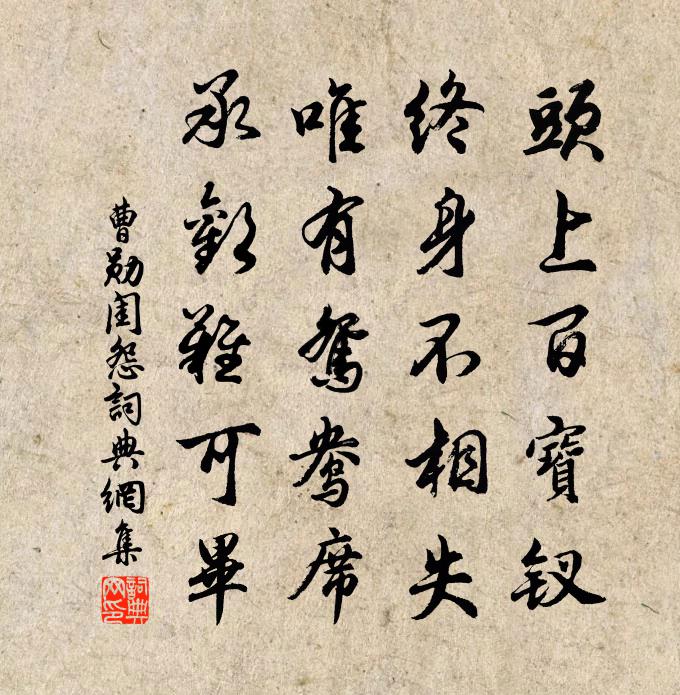 頭上百寶釵
終身不相失
唯有鴛鴦席
承歡難可畢
曹勛閨怨詞典網集
詞典網印